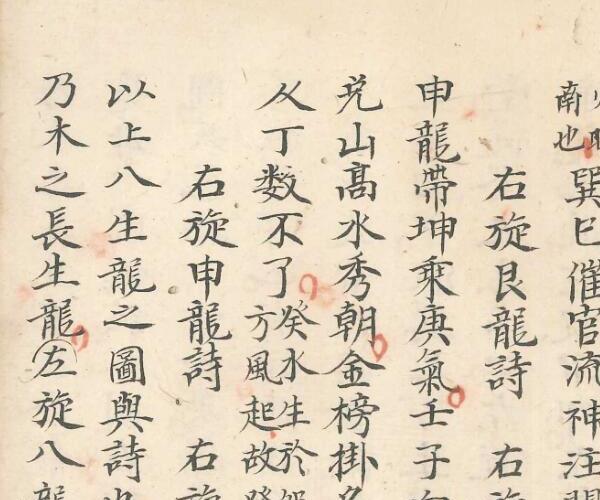 南也
巽巳催官流神注
右旋艮龍詩 右旋
申龍帶坤乘庚氣壬子
兊山髙水秀朝金榜掛名
从丁数不了癸水生於
方風起故
右旋申龍詩 右旋
以上八生龍之圖與詩也
乃木之長生龍左旋八龍